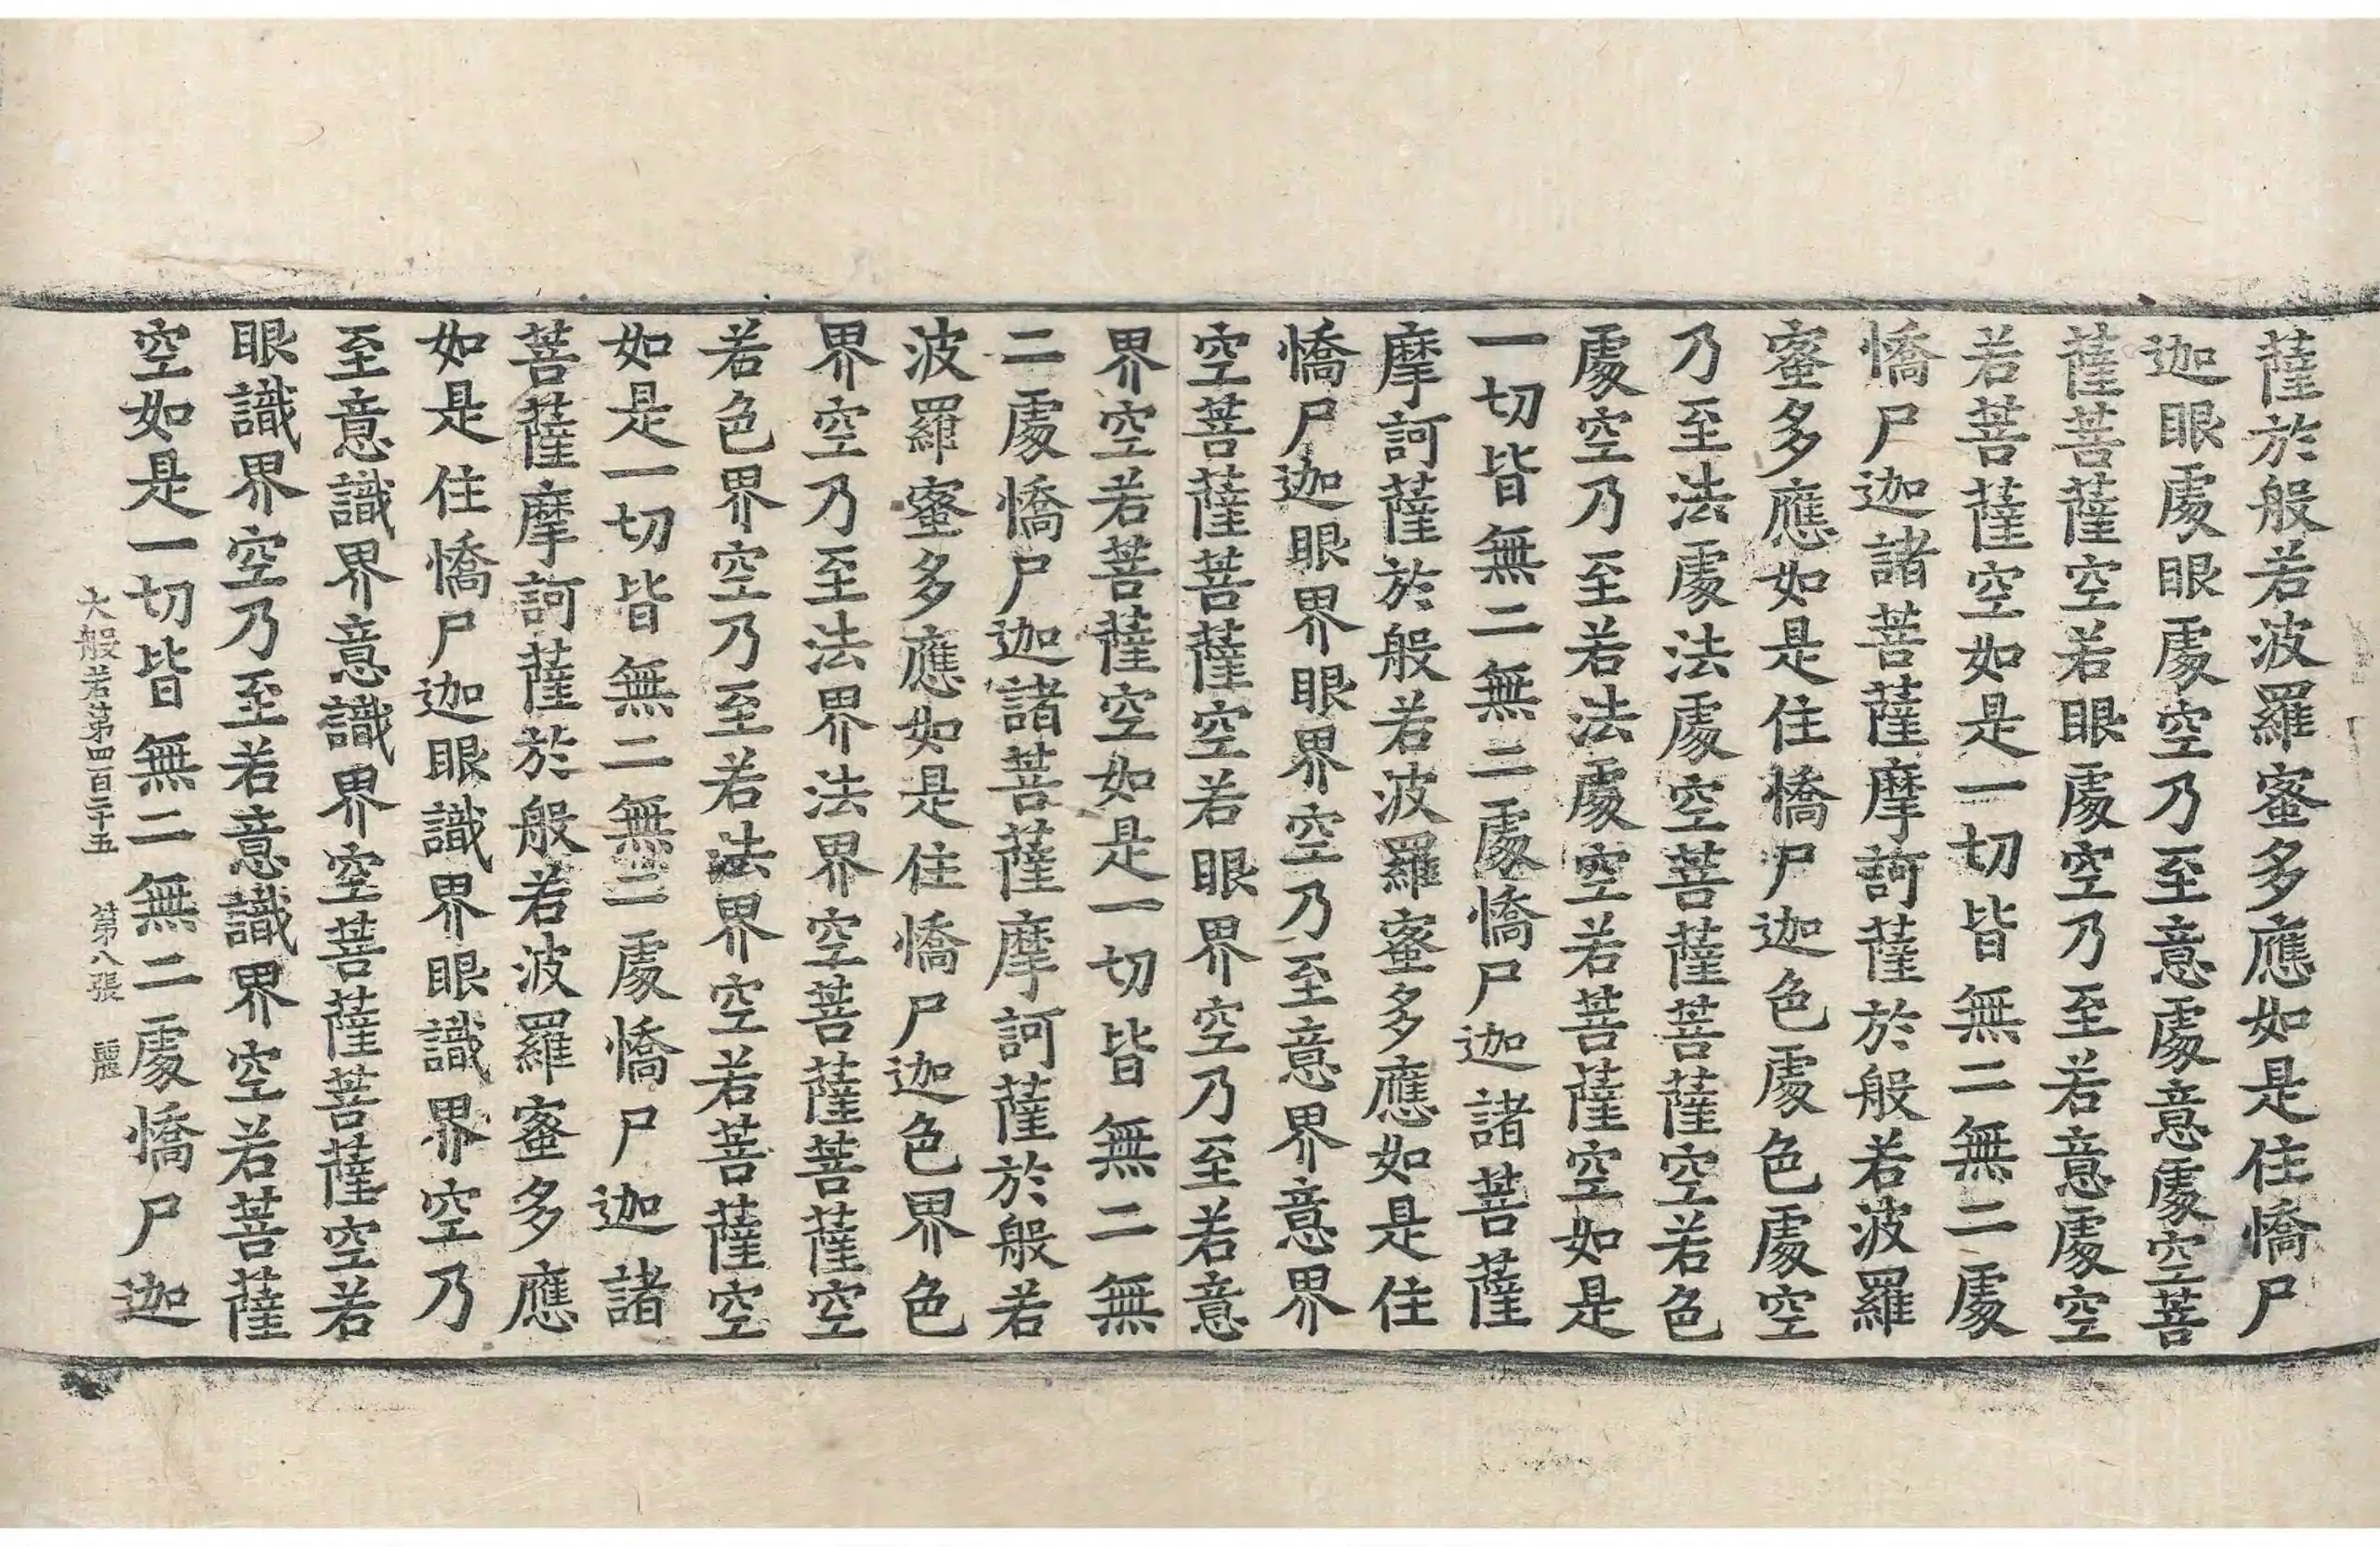 薩於般若波羅蜜多應如是住憍尸
迦眼處眼處空乃至意處意處空菩
薩菩薩空若眼處空乃至若意處空
若菩薩空如是一切皆無二無二處
憍尸迦諸菩薩摩訶薩於般若波羅
蜜多應如是住憍尸迦色處色處空
乃至法處法處空菩薩菩薩空若色
處空乃至若法處空若菩薩空如是
一切皆無二無二處憍尸迦諸菩薩
摩訶薩於般若波羅蜜多應如是住
憍尸迦眼界眼界空乃至意界意界
空菩薩菩薩空若眼界空乃至若意
界空若菩薩空如是一切皆無二無
二處憍尸迦諸菩薩摩訶薩於般若
波羅蜜多應如是住憍尸迦色界色
界空乃至法界法界空菩薩菩薩空
若色界空乃至若法界空若菩薩空
如是一切皆無二無二處憍尸迦諸
菩薩摩訶薩於般若波羅蜜多應
如是住憍尸迦眼識界眼識界空乃
至意識界意識界空菩薩菩薩空若
眼識界空乃至若意識界空若菩薩
空如是一切皆無二無二處憍尸迦
大般若第四百二十五 第八張 麗